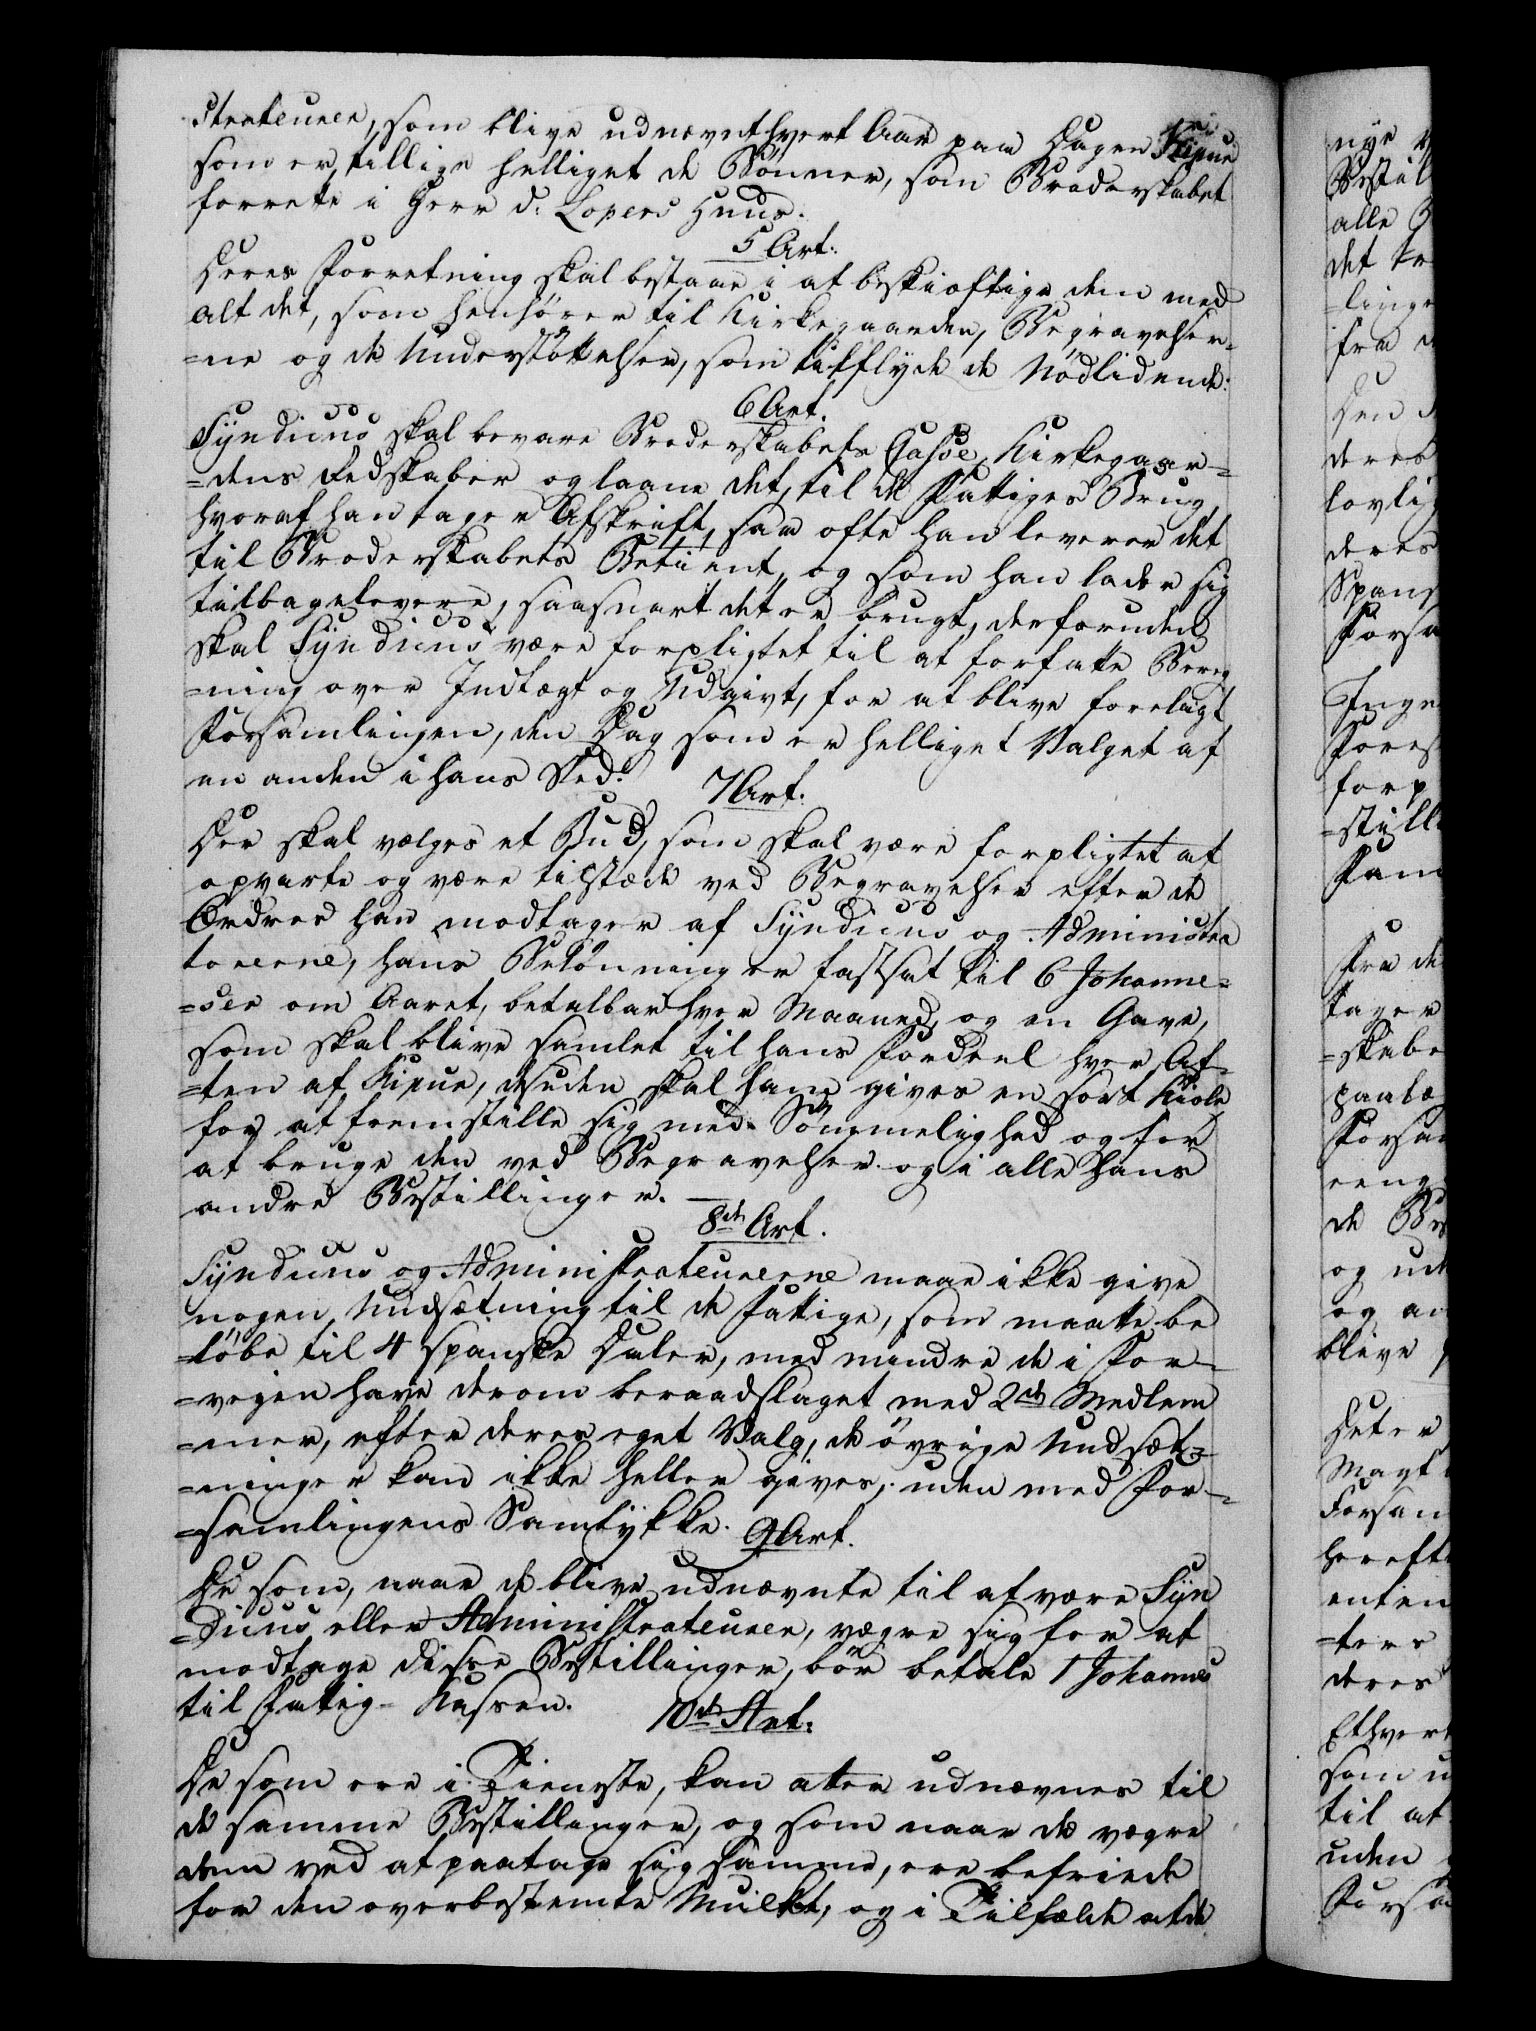 strateurer, som blive udnævnt hvert Aar paa Dagen Kipur
som er tillige helliget de Bönner, som Broderskabet
forrette i Herr d: Lopers Huus.
5 Art:
Deres Forretning skal bestaae i at beskiæftige dem med
alt det, som henhörer til Kirkegaarden, Begravelser-
=ne og de Understöttelser, som tilflyde de Nödlidende:
6 Art.
Syndicus skal bevare Broderskabets Casse, Kirkegaar-
=dens Redskaber og laane det, til de Fattiges Brug,
hvoraf han tager Afskrift, saa ofte han leverer det
til Broderskabets Betient, og som han lader sig
tilbagelevere, saasnart det er brugt, desforuden
skal Syndicus være forpligtet til at forfatte Bereg
=ning over Indtægt og Udgivt, for at blive forelagt
Forsamlingen, den Dag som er helliget Valget af
en anden i hans Sted.
7 Art:
Der skal vælges et Bud, som skal være forpligtet at
opvarte og være tilstæde ved Begravelser efter de
Ordrer han modtager af Syndicus og Administra
torerne, hans Belönning er fastsat til 6 Johanne-
=ser om Aaret, betalbar hver Maaned, og en Gave,
som skal blive samlet til hans Fordeel hver Af-
=ten af Kipur, desuden skal ham gives en sort Kiole
for at fremstille sig med Sömmelighed og for
at bruge den ved Begravelser og i alle hans
andre Bestillinger.
8de Art.
Syndicus og Administrateurerne maae ikke give
nogen Undsætning til de Fattige, som maatte be
=löbe til 4 spanske Daler, med mindre de i For-
=vejen have derom beraadslaget med 2de Medlem
=mer, efter deres eget Valg, de övrige Undsæt-
=ninger kan ikke heller gives, uden med For-
=samlingens Samtykke.
9 Art.
De som, naar de blive udnævnte til at være Syn
=dicus eller Administrateurer, vægre sig for at
modtage disse Bestillinger, bör betale 1 Johannes
til Fattig-Kassen.
10de Art.
De som ere i Tieneste, kan atter udnævnes til
de samme Bestillinger, og som naar de vægre
dem ved at paatage sig samme, ere befriede
for den overbestemte Mulkt, og i Tilfælde at de